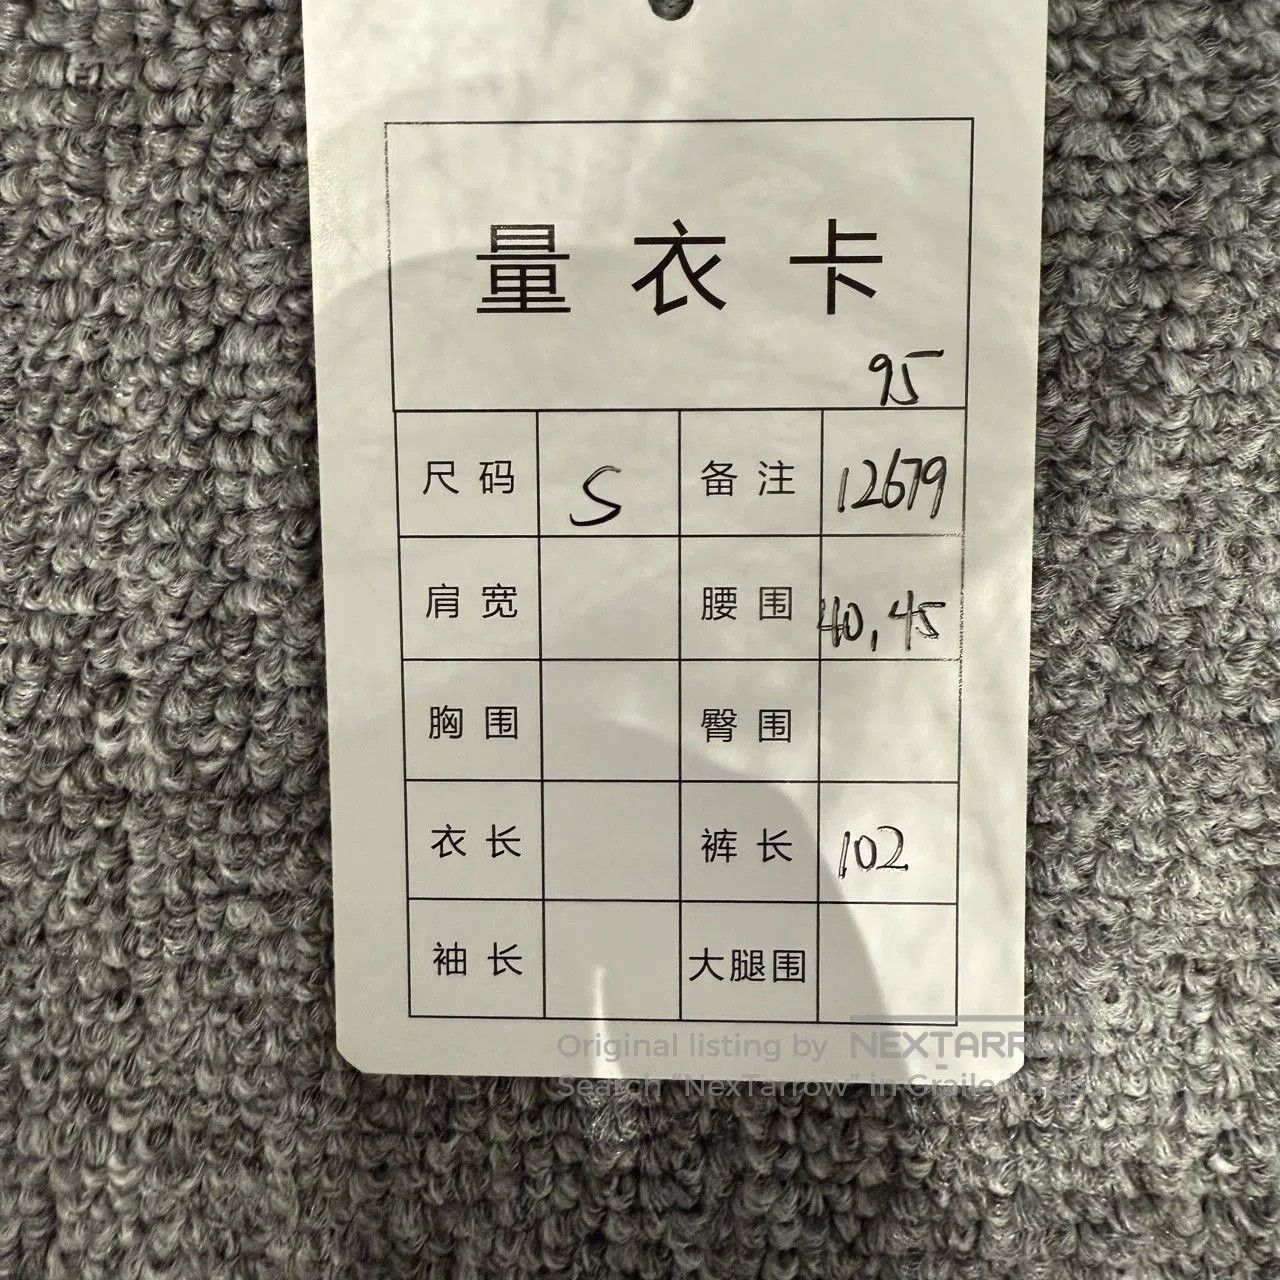 量衣卡
95
尺码 S 备注 12679
肩宽 腰围 40,45
胸围 臀围
衣长 裤长 102
袖长 大腿围
Original listing by NEXTARROW
Search "NexTarrow" in